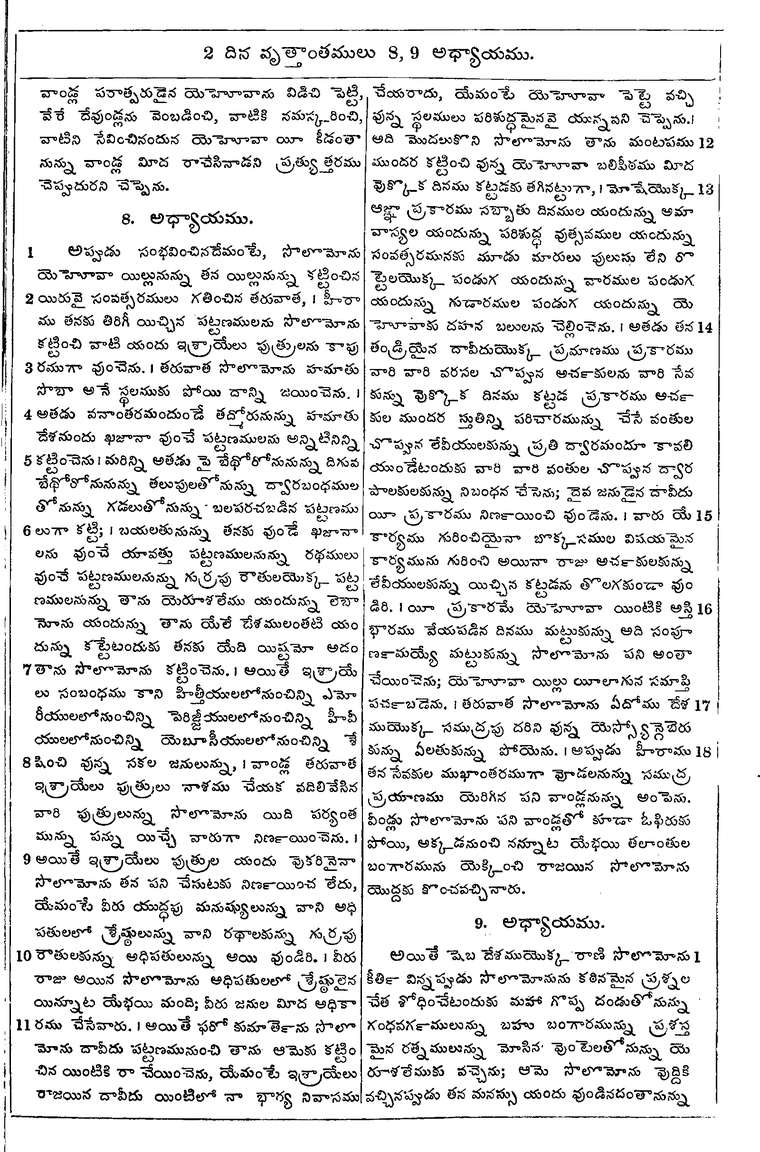 2 దిన వృత్తాంతములు 8, 9 అధ్యాయము.
వాండ్ల పరాత్పరుడైన యెహోవాను విడిచి పెట్టి,
వేరే దేవుండ్లను వెంబడించి, వాటికి నమస్కరించి,
వాటిని సేవించినందున యెహోవా యీ కీడంతా
నున్ను వాండ్ల మీద రాచేసినాడని ప్రత్యుత్తరము
చెప్పుదురని చెప్పెను.
8. అధ్యాయము.
1 అప్పుడు సంభవించినదేమంటే, సొలొమోను
యెహోవా యిల్లునున్ను తన యిల్లునున్ను కట్టించిన
2 యిరువై సంవత్సరములు గతించిన తరువాత, । హీరా
ము తనకు తిరిగీ యిచ్చిన పట్టణములను సొలొమోను
కట్టించి వాటి యందు ఇశ్రాయేలు పుత్రులను కాపు
3 రముగా వుంచెను. । తరువాత సొలొమోను హమాతు
సొబా అనే స్థలముకు పోయి దాన్ని జయించెను. ।
4 అతడు వనాంతరమందుండే తద్మోరునున్ను హమాతు
దేశమందు ఖజానా వుంచే పట్టణములను అన్నిటినిన్ని
5 కట్టించెను। మరిన్ని అతడు పై బేథోరోనునున్ను దిగువ
బేథోరోనునున్ను తలుపులతోనున్ను ద్వారబంధముల
తోనున్ను గడలుతోనున్ను బలపరచబడిన పట్టణము
6 లుగా కట్టి; । బయలతునున్ను తనకు వుండే ఖజానా
లను వుంచే యావత్తు పట్టణములనున్ను రథములు
వుంచే పట్టణములనున్ను గుర్రపు రౌతులయొక్క పట్ట
ణములనున్ను తాను యెరూశలేము యందున్ను లెబా
నోను యందున్ను తాను యేలే దేశములంతటి యం
దున్ను కట్టేటందుకు తనకు యేది యిష్టమో అదం
7 తాను సొలొమోను కట్టించెను. । అయితే ఇశ్రాయే
లు సంబంధము కాని హిత్తీయులలోనుంచిన్ని ఎమో
రీయులలోనుంచిన్ని పెరిజ్జీయులలోనుంచిన్ని హీవీ
యులలోనుంచిన్ని యెబూసీయులలోనుంచిన్ని శే
8 షించి వున్న సకల జనులున్ను, । వాండ్ల తరువాత
ఇశ్రాయేలు పుత్రులు నాశము చేయక వదిలివేసిన
వారి పుత్రులున్ను సొలొమోను యిది పర్యంత
మున్ను పన్ను యిచ్చే వారుగా నిర్ణయించెను. ।
9 అయితే ఇశ్రాయేలు పుత్రుల యందు వుకరినైనా
సొలొమోను తన పని చేసుటకు నిర్ణయించ లేదు,
యేమంటే వీరు యుద్ధపు మనుష్యులున్ను వాని అధి
పతులలో శ్రేష్ఠులున్ను వాని రథాలకున్ను గుర్రపు
10 రౌతులకున్ను అధిపతులున్ను అయి వుండిరి. । వీరు
రాజు అయిన సొలొమోను అధిపతులలో శ్రేష్ఠులైన
యిన్నూట యేభయి మంది; వీరు జనుల మీద అధికా
11 రము చేసేవారు. । అయితే ఫరో కుమార్తెను సొలొ
మోను దావీదు పట్టణమునుంచి తాను ఆమెకు కట్టిం
చిన యింటికి రా చేయించెను, యేమంటే ఇశ్రాయేలు
రాజయిన దావీదు యింటిలో నా భార్య నివాసము
చేయరాదు, యేమంటే యెహోవా పెట్టె వచ్చి
వున్న స్థలములు పరిశుద్ధమైనవై యున్నవని చెప్పెను.।
అది మొదలుకొని సొలొమోను తాను మంటపము 12
ముందర కట్టించి వున్న యెహోవా బలిపీఠము మీద
వుక్కొక దినము కట్టడకు తగినట్టుగా, । మోషేయొక్క 13
ఆజ్ఞా ప్రకారము సబ్బాతు దినముల యందున్ను అమా
వాస్యల యందున్ను పరిశుద్ధ వుత్సవముల యందున్ను
సంవత్సరమునకు మూడు మారులు పులుసు లేని రొ
ట్టెలయొక్క పండుగ యందున్ను వారముల పండుగ
యందున్ను గుడారముల పండుగ యందున్ను యె
హోవాకు దహన బలులను చెల్లించెను. । అతడు తన 14
తండ్రియైన దావీదుయొక్క ప్రమాణము ప్రకారము
వారి వారి వరసల చొప్పున అర్చకులను వారి సేవ
కున్ను వుక్కొక దినము కట్టడ ప్రకారము అర్చ
కుల ముందర స్తుతిన్ని పరిచారమున్ను చేసే వంతుల
చొప్పున లేవీయులకున్ను ప్రతి ద్వారమందూ కావలి
యుండేటందుకు వారి వారి వంతుల చొప్పున ద్వార
పాలకులకున్ను నిబంధన చేసెను; దైవ జనుడైన దావీదు
యీ ప్రకారము నిర్ణయించి వుండెను. । వారు యే 15
కార్యము గురించియైనా బొక్కసముల విషయమైన
కార్యమును గురించి అయినా రాజు అర్చకులకున్ను
లేవీయులకున్ను యిచ్చిన కట్టడను తొలగకుండా వుం
డిరి. । యీ ప్రకారమే యెహోవా యింటికి అస్తి 16
భారము వేయపడిన దినము మట్టుకున్ను అది సంపూ
ర్ణమయ్యే మట్టుకున్ను సొలొమోను పని అంతా
చేయించెను; యెహోవా యిల్లు యీలాగున సమాప్తి
పర్చబడెను. । తరువాత సొలొమోను ఏదోము దేశ 17
ముయొక్క సముద్రపు దరిని వున్న యెస్యోన్గెబెరు
కున్ను ఏలతుకున్ను పోయెను. । అప్పుడు హీరాము 18
తన సేవకుల ముఖాంతరముగా వోడలనున్ను సముద్ర
ప్రయాణము యెరిగిన పని వాండ్లనున్ను అంపెను.
వీండ్లు సొలొమోను పని వాండ్లతో కూడా ఓఫీరుకు
పోయి, అక్కడనుంచి నన్నూట యేభయి తలాంతుల
బంగారమును యెక్కించి రాజయిన సొలొమోను
యొద్దకు కొంచవచ్చినారు.
9. అధ్యాయము.
అయితే షెబ దేశముయొక్క రాణి సొలొమోను 1
కీర్తి విన్నప్పుడు సొలొమోనును కఠినమైన ప్రశ్నల
చేత శోధించేటందుకు మహా గొప్ప దండుతోనున్ను
గంధవర్గములున్ను బహు బంగారమున్ను ప్రశస్త
మైన రత్నములున్ను మోసిన వుంటెలతోనున్ను యె
రూశలేముకు వచ్చెను; ఆమె సొలొమోను వుద్దికి
వచ్చినప్పుడు తన మనస్సు యందు వుండినదంతానున్ను